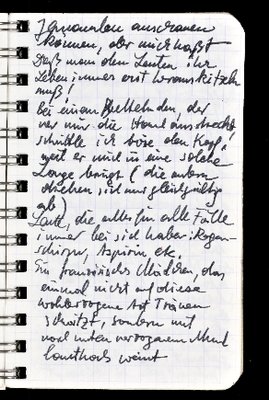 Jemanden anschauen
können, aber mich haßt
Daß man den Leuten ihr
Leben immer erst herauskitzeln
muß!
bei einem Bettelnden, der
vor mir die Hand ausstreckt
schüttle ich böse den Kopf,
weil er mich in eine solche
Lage bringt (die andern
drehen sich nur gleichgültig
ab)
Leute, die alles für alle Fälle
immer bei sich haben: Regen-
schirm, Aspirin, etc.
Ein französisches Mädchen, das
einmal nicht auf diese
wohlerzogene Art Tränen
schwitzt, sondern mit
nach unten verzogenem Mund
lauthals weint